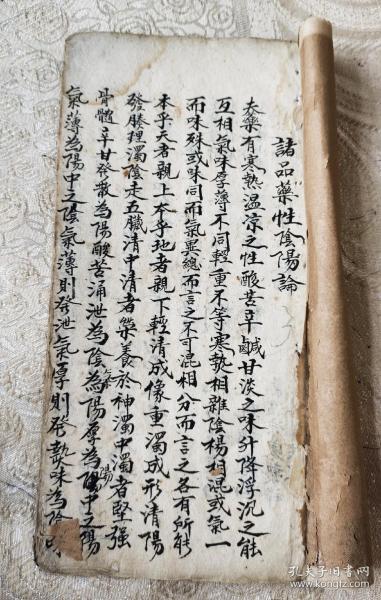 諸品藥性陰陽論
夫藥有寒熱溫凉之性酸苦辛鹹甘淡之味升降浮沉之能
互相氣味厚薄不同輕重不等寒热相雜陰楊相混或氣一
而味殊或味同而氣異總而言之不可混相分而言之各有所能
本乎天者親上本乎地者親下輕清成像重濁成形清陽
發腠理濁陰走五臟清中清者榮養於神濁中濁者堅强
骨髓辛甘發散為陽酸苦涌泄為陰氣為陽厚為陽中之陽
氣薄為陽中之陰氣薄則發泄氣厚則發熱味為陰
陽
孔夫子旧书网
www.kongfz.com